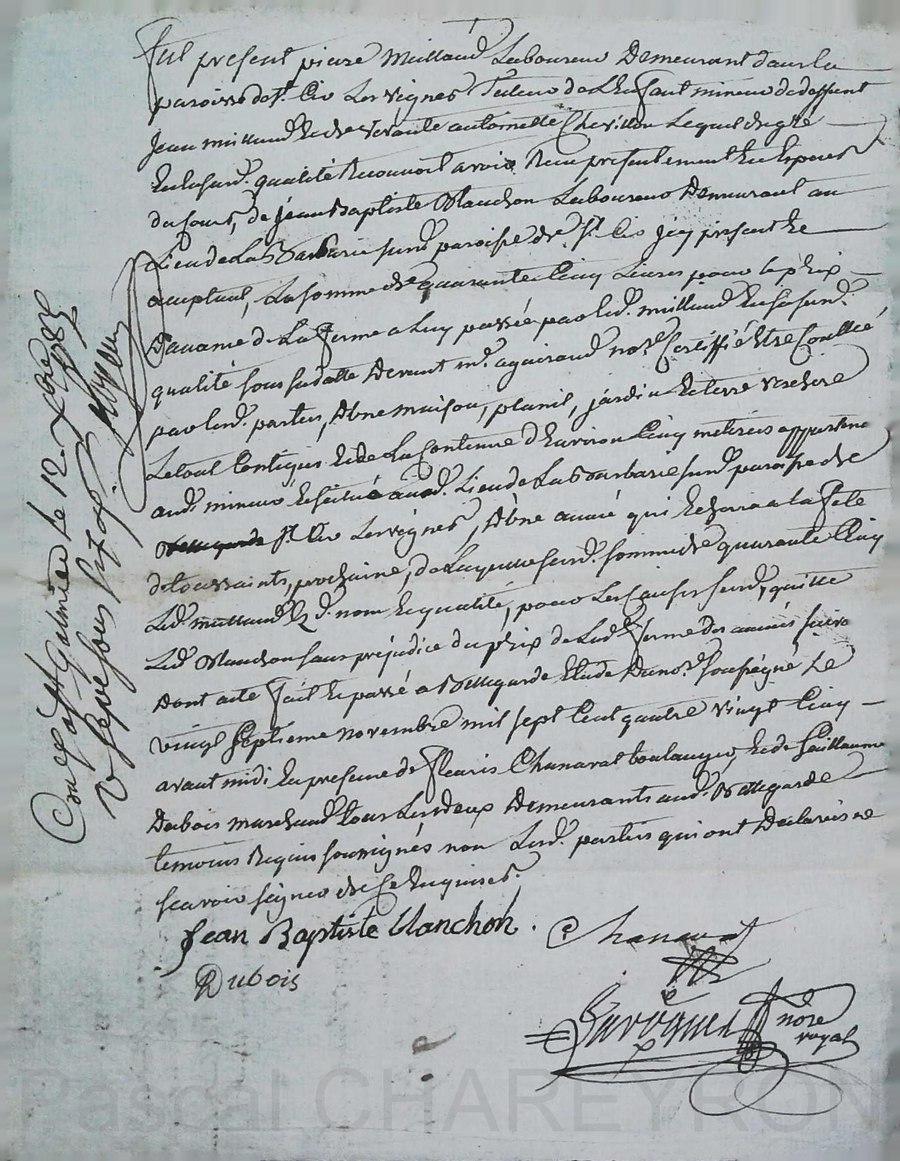 Fut présent pierre Millaud Laboureur Demeurant dans la
paroisse de st. Cir Les vignes Tuteur de L'Enfant mineur de deffunt
Jean millaud et de vivante antoinette Chevillon Lequel de gré
En lad. qualité Reconnoit avoir Reçu presentement En Especes
du Cours, de Jean Baptiste Blanchon Laboureur Demeurant au
Lieu de La Barbarie susd. paroisse de st. Cir Icy présent Et
acceptant, La somme de quarante Cinq Livres pour le prix
D'avance de La ferme a Luy passée par led. millaud En sa susd.
qualité sous sa datte Devant me. not. Certiffié Etre Controllé
par lesd. parties, D'une maison, jardin Et terre verchere
Le tout Contigus Et de La Contenue D'Environ Cinq métérées appartena
aud. mineur Et scitué aud. Lieu de La Barbarie susd. paroisse de
st. Cir Les vignes, D'une année qui Echoira a La fete
de toussaints prochaine, de Laquelle susd. somme de quarante Cinq
Led. millaud Esd. nom Et qualité, pour Les Causes susd. quitte
Led. Blanchon sans préjudice du prix de Lad. ferme des années
Dont acte fait Et passé a Bellegarde Etude du nore. soussigné Le
vingt septieme novembre mil sept Cent quatre vingt Cinq
avant midi En presence de fleuris Chanavat boulanger, Et de Guillaume
Dubois marchand tous Les deux Demeurants aud. Bellegarde
temoins Requis soussignés non Lesd. parties qui ont Declarés ne
scavoir signer de Ce Enquises.
Jean Baptiste Blanchon. Chanavat
Dubois
nore
royal
Conlé a St Galmier le 12 Xbre 1785
Pascal CHAREYRON